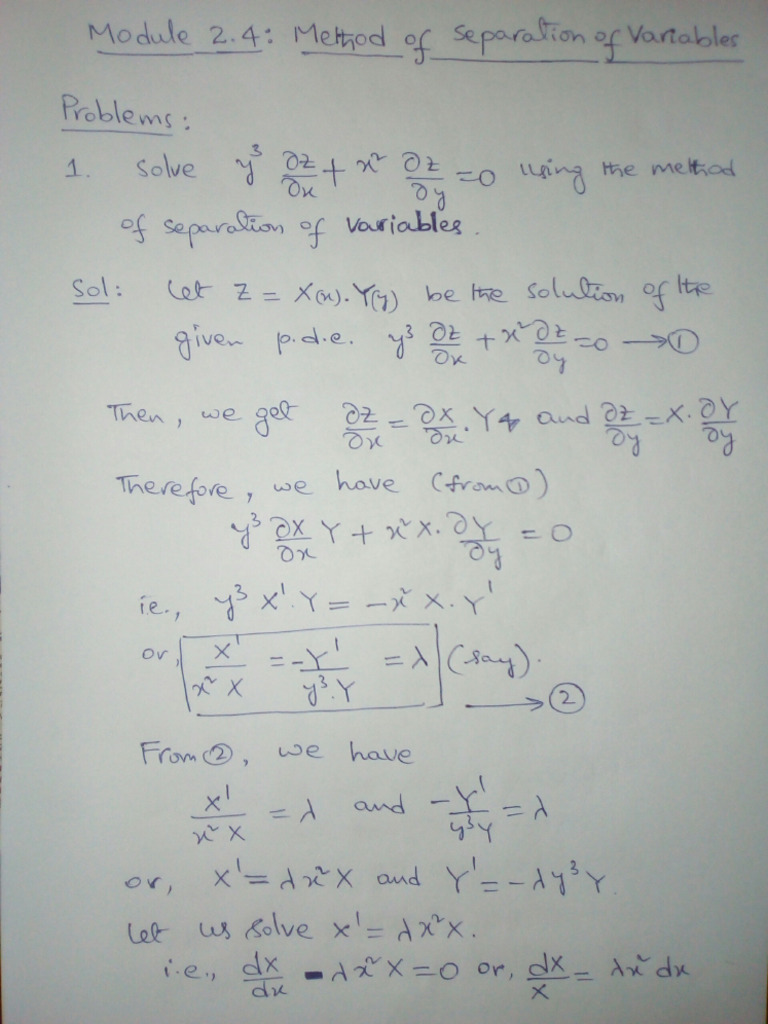 Module 2.4: Method of Separation of Variables
Problems:
1. Solve y³ ∂z/∂x + x² ∂z/∂y = 0 using the method
of separation of variables.
Sol: Let Z = X(x).Y(y) be the solution of the
given p.d.e. y³ ∂z/∂x + x² ∂z/∂y = 0 → ①
Then, we get ∂z/∂x = ∂X/∂x . Y and ∂z/∂y = X. ∂Y/∂y
Therefore, we have (from ①)
y³ ∂X/∂x Y + x² X. ∂Y/∂y = 0
i.e., y³ X'.Y = -x² X.Y'
or, X'/x² X = -Y'/y³.Y = λ (say).
→ ②
From ②, we have
X'/x² X = λ and -Y'/y³Y = λ
or, X' = λx²X and Y' = -λy³Y.
Let us solve X' = λx²X.
i.e., dX/dx - λx²X = 0 or, dX/X = λx² dx